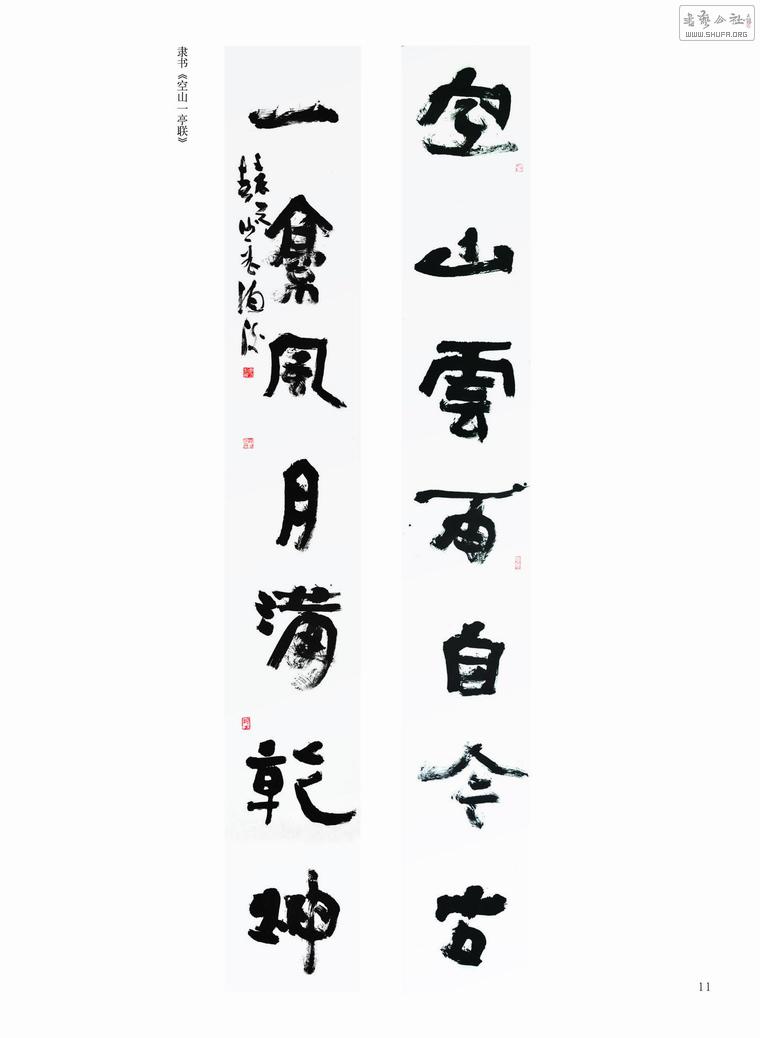 書藝公社
WWW.SHUFA.ORG
空山雲雨自今古
一亭風月滿乾坤
隶书《空山一亭联》
11